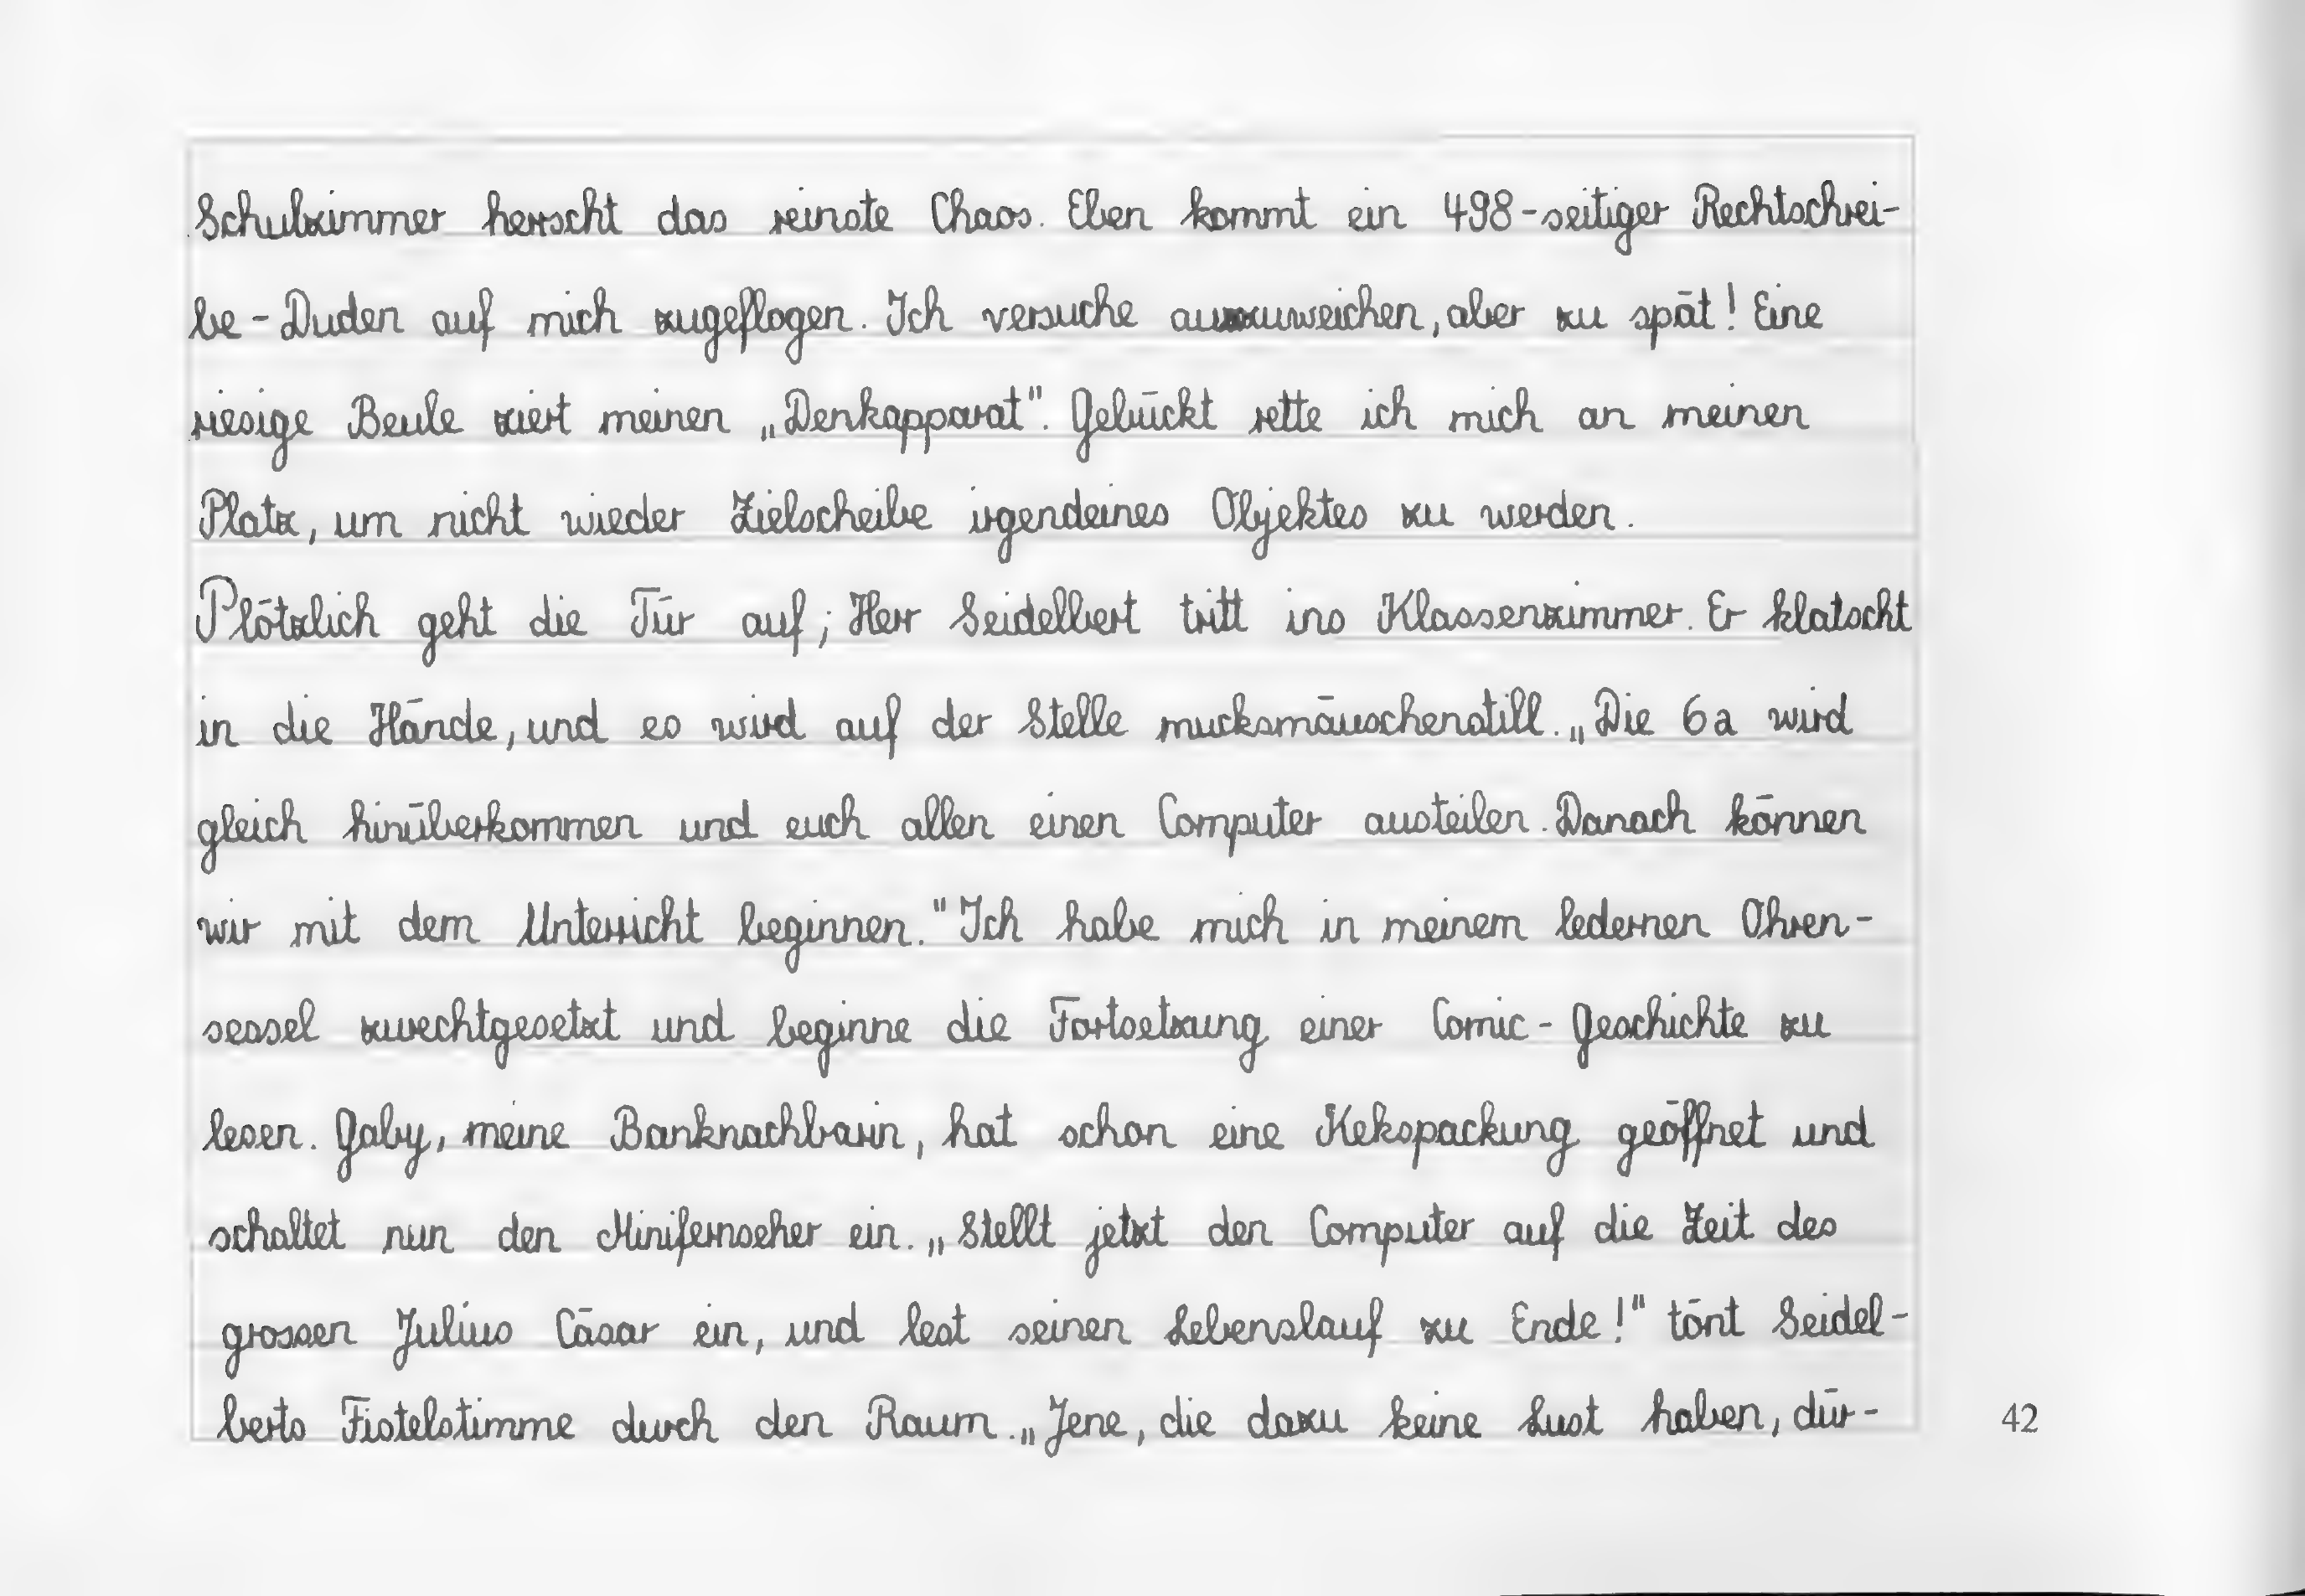 Schulzimmer herrscht das reinste Chaos. Eben kommt ein 498-seitiger Rechtschrei-
be-Duden auf mich zugeflogen. Ich versuche auszuweichen, aber zu spät! Eine
riesige Beule ziert meinen „Denkapparat". Gebückt rette ich mich an meinen
Platz, um nicht wieder Zielscheibe irgendeines Objektes zu werden.
Plötzlich geht die Tür auf; Herr Seidelbert tritt ins Klassenzimmer. Er klatscht
in die Hände, und es wird auf der Stelle mucksmäuschenstill. „Die 6a wird
gleich hinüberkommen und euch allen einen Computer austeilen. Danach können
wir mit dem Unterricht beginnen." Ich habe mich in meinem ledernen Ohren-
sessel zurechtgesetzt und beginne die Fortsetzung einer Comic-Geschichte zu
lesen. Gaby, meine Banknachbarin, hat schon eine Kekspackung geöffnet und
schaltet nun den Minifernseher ein. „Stellt jetzt den Computer auf die Zeit des
grossen Julius Cäsar ein, und lest seinen Lebenslauf zu Ende!" tönt Seidel-
berts Fistelstimme durch den Raum. „Jene, die dazu keine Lust haben, dür-
42